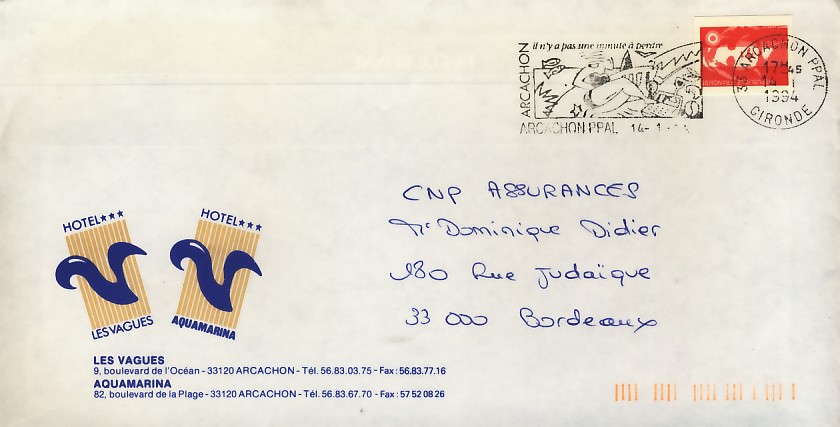 ARCACHON
il n'y a pas une minute à perdre
ARCACHON PPAL 14-1-
33 ARCACHON PPAL
17H45
14 - 1
1994
GIRONDE
CNP ASSURANCES
Mr Dominique Didier
180 Rue Judaïque
33 000 Bordeaux
HOTEL***
LES VAGUES
HOTEL***
AQUAMARINA
LES VAGUES
9, boulevard de l'Océan - 33120 ARCACHON - Tél. 56.83.03.75 - Fax : 56.83.77.16
AQUAMARINA
82, boulevard de la Plage - 33120 ARCACHON - Tél. 56.83.67.70 - Fax : 57 52 08 26